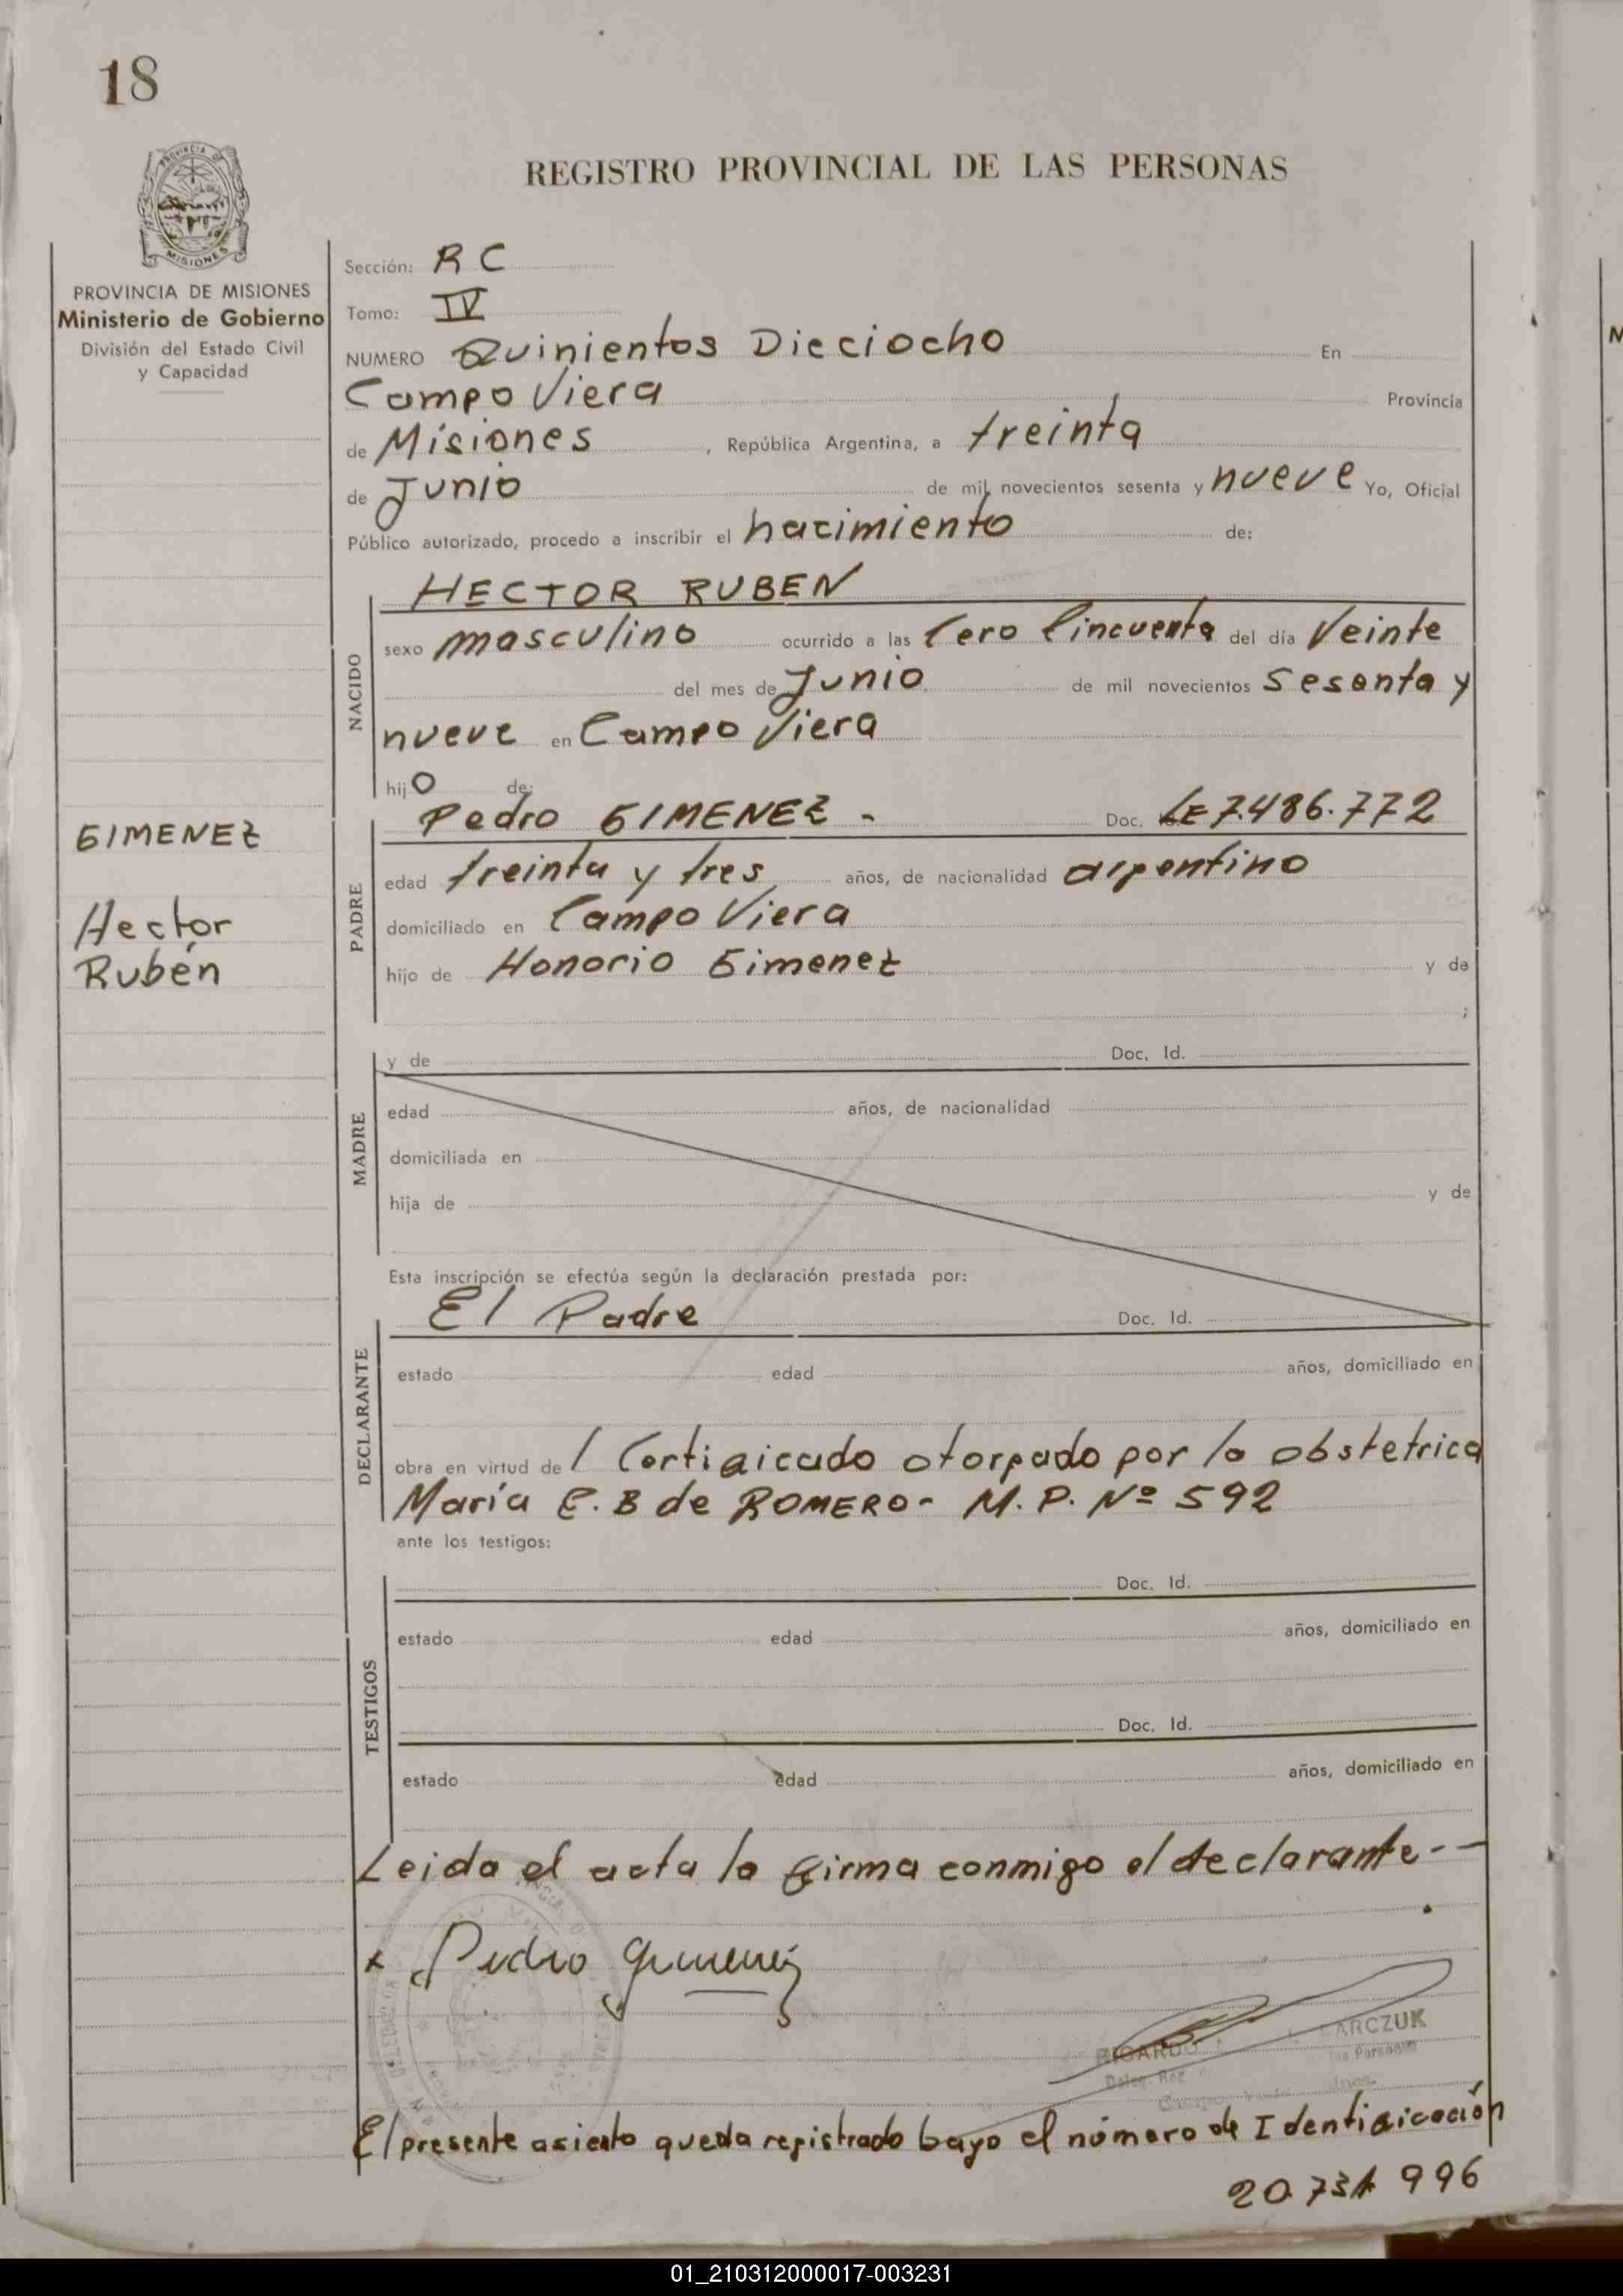 18
PROVINCIA DE
MISIONES
REGISTRO PROVINCIAL DE LAS PERSONAS
PROVINCIA DE MISIONES
Ministerio de Gobierno
División del Estado Civil
y Capacidad
Sección: R C
Tomo: IV
NUMERO Quinientos Dieciocho En
Campo Viera Provincia
de Misiones, República Argentina, a treinta
de Junio de mil novecientos sesenta y nueve Yo, Oficial
Público autorizado, procedo a inscribir el nacimiento de:
NACIDO
HECTOR RUBEN
sexo masculino ocurrido a las Cero Cincuenta del día Veinte
del mes de Junio de mil novecientos Sesenta y
nueve en Campo Viera
hijo de:
GIMENEZ
Hector
Rubén
PADRE
Pedro GIMENEZ - Doc. LE 7.486.772
edad treinta y tres años, de nacionalidad argentino
domiciliado en Campo Viera
hijo de Honorio Gimenez y de
;
MADRE
y de Doc. Id.
edad años, de nacionalidad
domiciliada en
hija de y de
Esta inscripción se efectúa según la declaración prestada por:
DECLARANTE
El Padre Doc. Id.
estado edad años, domiciliado en
obra en virtud de l Certificado otorgado por la obstetrica
María E. B de ROMERO - M. P. Nº 592
ante los testigos:
TESTIGOS
Doc. Id.
estado edad años, domiciliado en
Doc. Id.
estado edad años, domiciliado en
Leida el acta la firma conmigo el declarante - -
x Pedro Gimenez
RICARDO ARCZUK
El presente asiento queda registrado bayo el número de Identificación
20.731 996
01_210312000017-003231